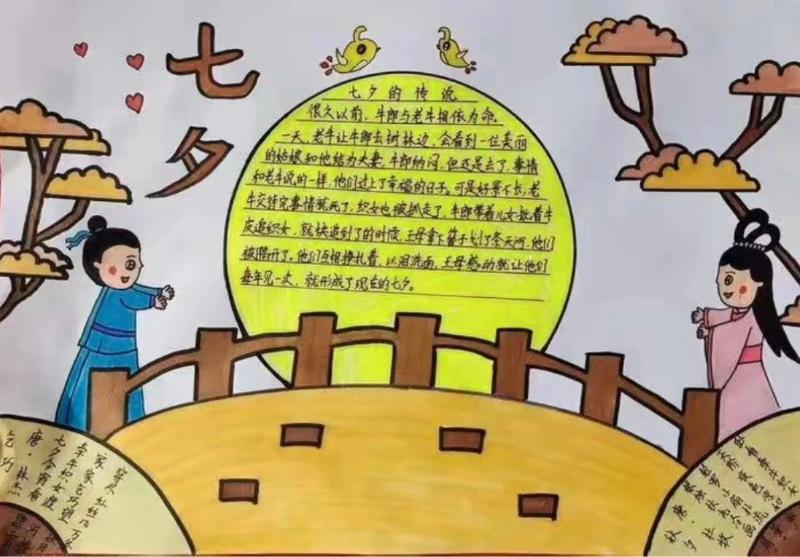 七夕
七夕的传说
很久以前,牛郎与老牛相依为命。
一天,老牛让牛郎去树林边,会看到一位美丽
的姑娘和他结为夫妻,牛郎纳闷,但还是去了,事情
和老牛说的一样,他们过上了幸福的日子。可是好景不长,老
牛交待完事情就死了,织女也被抓走了,牛郎带着儿女披着牛
皮追织女,就快追到了的时候,王母拿下簪子划了条天河,他们
被隔开了。他们互相挣扎着,以泪洗面,王母感动就让他们
每年见一次,就形成了现在的七夕。
乞巧
唐·林杰
七夕今宵看
牵牛织女渡
家家乞巧望
秋夕
唐·杜牧